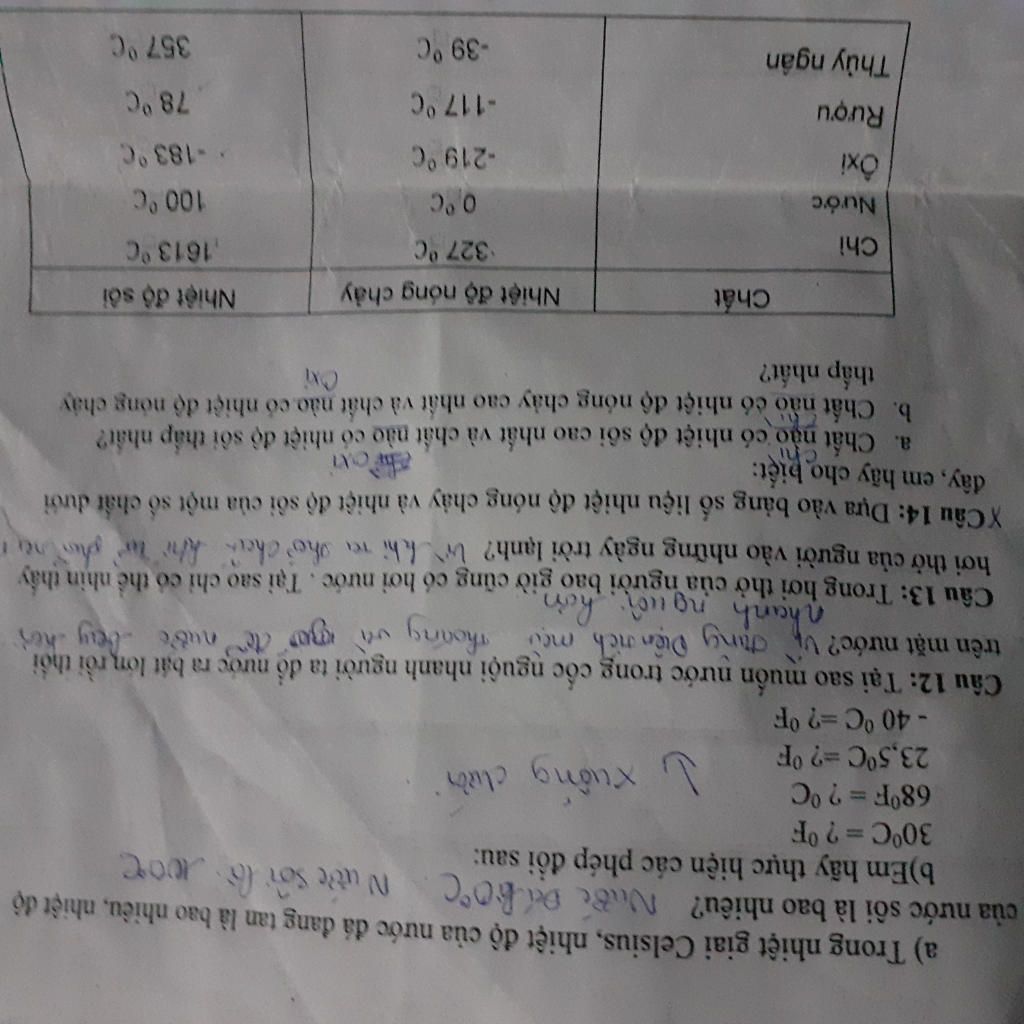 a) Trong nhiệt giai Celsius, nhiệt độ của nước đá đang tan là bao nhiêu, nhiệt độ
của nước sôi là bao nhiêu? Nước Đá 0°C Nước sôi là 100°C
b)Em hãy thực hiện các phép đổi sau:
30⁰C = ? ⁰F
68⁰F = ? ⁰C
23,5⁰C =? ⁰F
- 40 ⁰C =? ⁰F
↳ xuống dưới
Câu 12: Tại sao muốn nước trong cốc nguội nhanh người ta đổ nước ra bát lớn rồi thổi
trên mặt nước? Vì Diện tích thoáng và để nước bay hơi
nhanh nguội hơn
Câu 13: Trong hơi thở của người bao giờ cũng có hơi nước . Tại sao chỉ có thể nhìn thấy
hơi thở của người vào những ngày trời lạnh? Vì khi
X Câu 14: Dựa vào bảng số liệu nhiệt độ nóng chảy và nhiệt độ sôi của một số chất dưới
đây, em hãy cho biết:
chì oxi
a. Chất nào có nhiệt độ sôi cao nhất và chất nào có nhiệt độ sôi thấp nhất?
b. Chất nào có nhiệt độ nóng chảy cao nhất và chất nào có nhiệt độ nóng chảy
thấp nhất? Oxi
Chất Nhiệt độ nóng chảy Nhiệt độ sôi
Chì 327 ⁰C 1613 ⁰C
Nước 0 ⁰C 100 ⁰C
Ôxi -219 ⁰C -183 ⁰C
Rượu -117 ⁰C 78 ⁰C
Thủy ngân -39 ⁰C 357 ⁰C